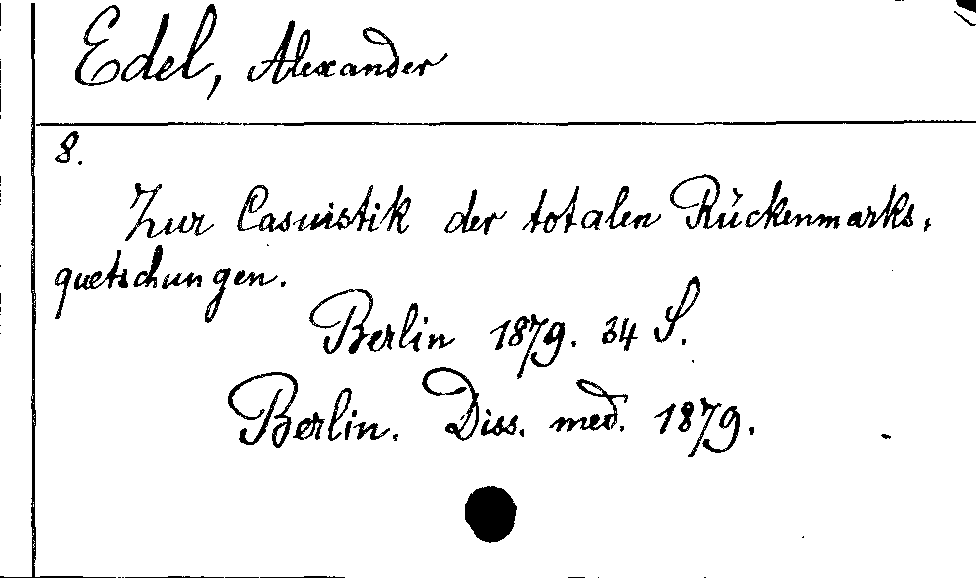 Edel, Alexander
8.
Zur Casuistik der totalen Rückenmarks,
quetschungen.
Berlin 1879. 34 S.
Berlin. Diss. med. 1879.